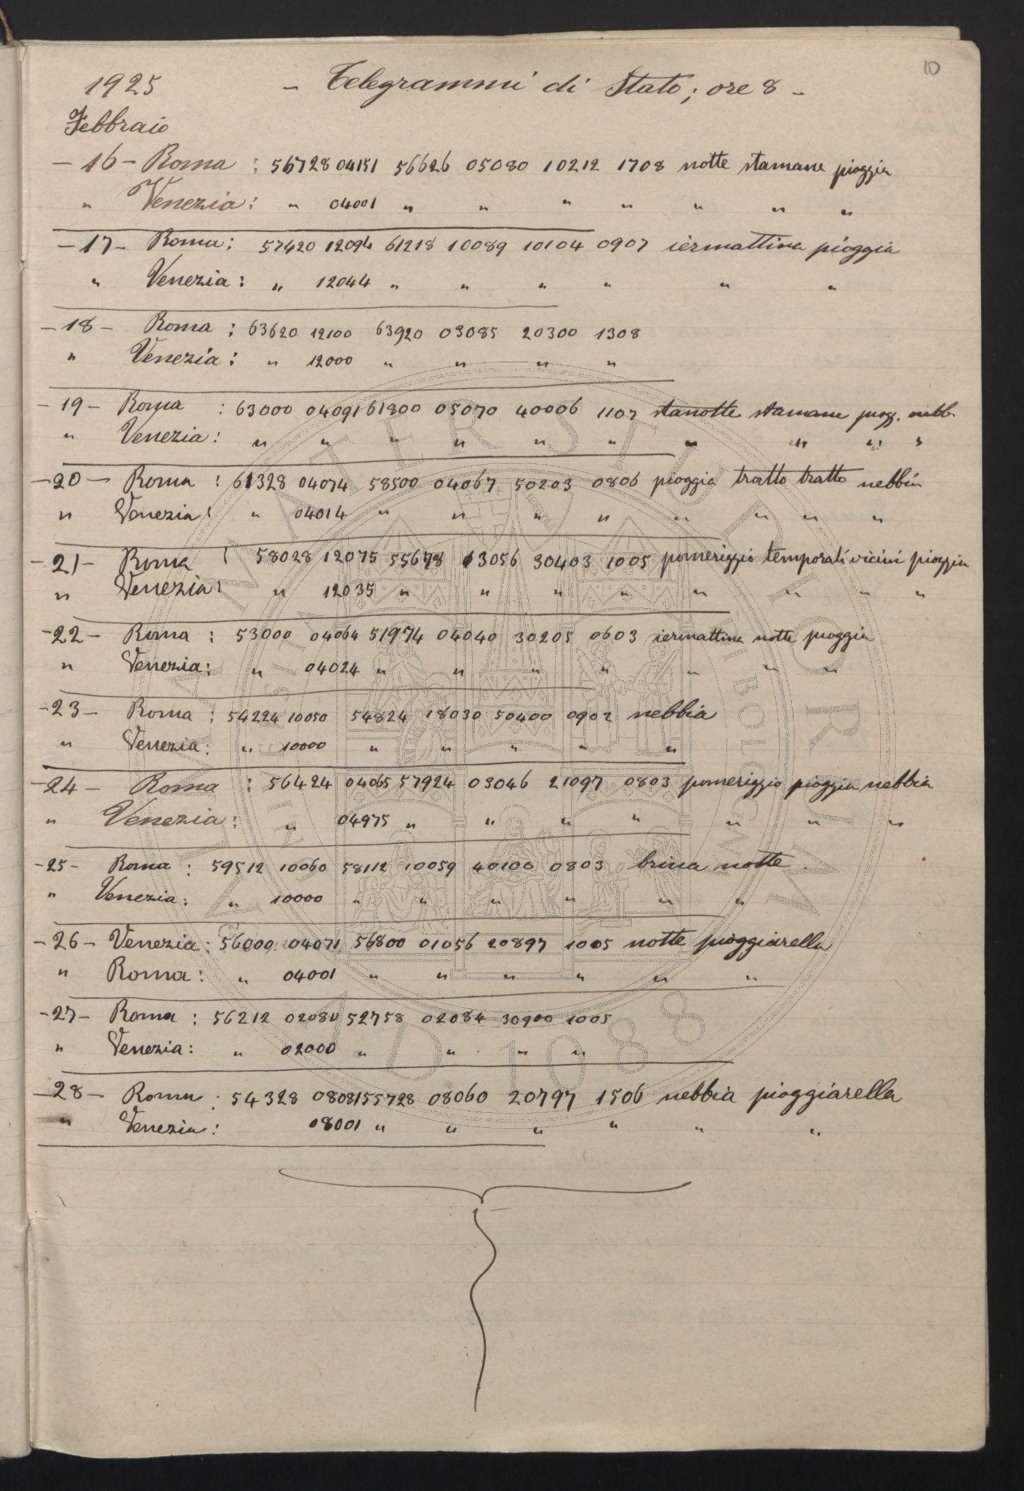 10
1925 - Telegrammi di Stato; ore 8 -
Febbraio
- 16 - Roma : 56728 04151 56626 05080 10212 1708 notte stamane pioggia
" Venezia : " 04001 " " " " " " "
- 17 - Roma : 57420 12094 61218 10089 10104 0907 iermattina pioggia
" Venezia : " 12044 " " " " " "
- 18 - Roma : 63620 12100 63920 03085 20300 1308
" Venezia : " 12000 " " " "
- 19 - Roma : 63000 04091 61800 05070 40006 1107 stanotte stamane piog. nebb.
" Venezia : " " " " " " " " " "
- 20 - Roma : 61328 04074 58500 04067 50203 0806 pioggia tratto tratto nebbia
" Venezia : " 04014 " " " " " " " "
- 21 - Roma : 58028 12075 55678 13056 30403 1005 pomeriggio temporali vicini pioggia
" Venezia : " 12035 " " " " " " " "
- 22 - Roma : 53000 04064 51974 04040 30205 0603 iermattina notte pioggia
" Venezia : " 04024 " " " " " " "
- 23 - Roma : 54224 10050 54824 18030 50400 0902 nebbia
" Venezia : " 10000 " " " " "
- 24 - Roma : 56424 04065 57924 03046 21097 0803 pomeriggio pioggia nebbia
" Venezia : " 04975 " " " " " " "
- 25 - Roma : 59512 10060 58112 10059 40100 0803 brina notte
" Venezia : " 10000 " " " " " "
- 26 - Venezia : 56000 04071 56800 01056 20897 1005 notte pioggiarella
" Roma : " 04001 " " " " " "
- 27 - Roma : 56212 02080 52758 02084 30900 1005
" Venezia : " 02000 " " " "
- 28 - Roma : 54328 08081 55728 08060 20797 1506 nebbia pioggiarella
" Venezia : 08001 " " " " " "
ALMA MATER STUDIORUM
A.D. 1088